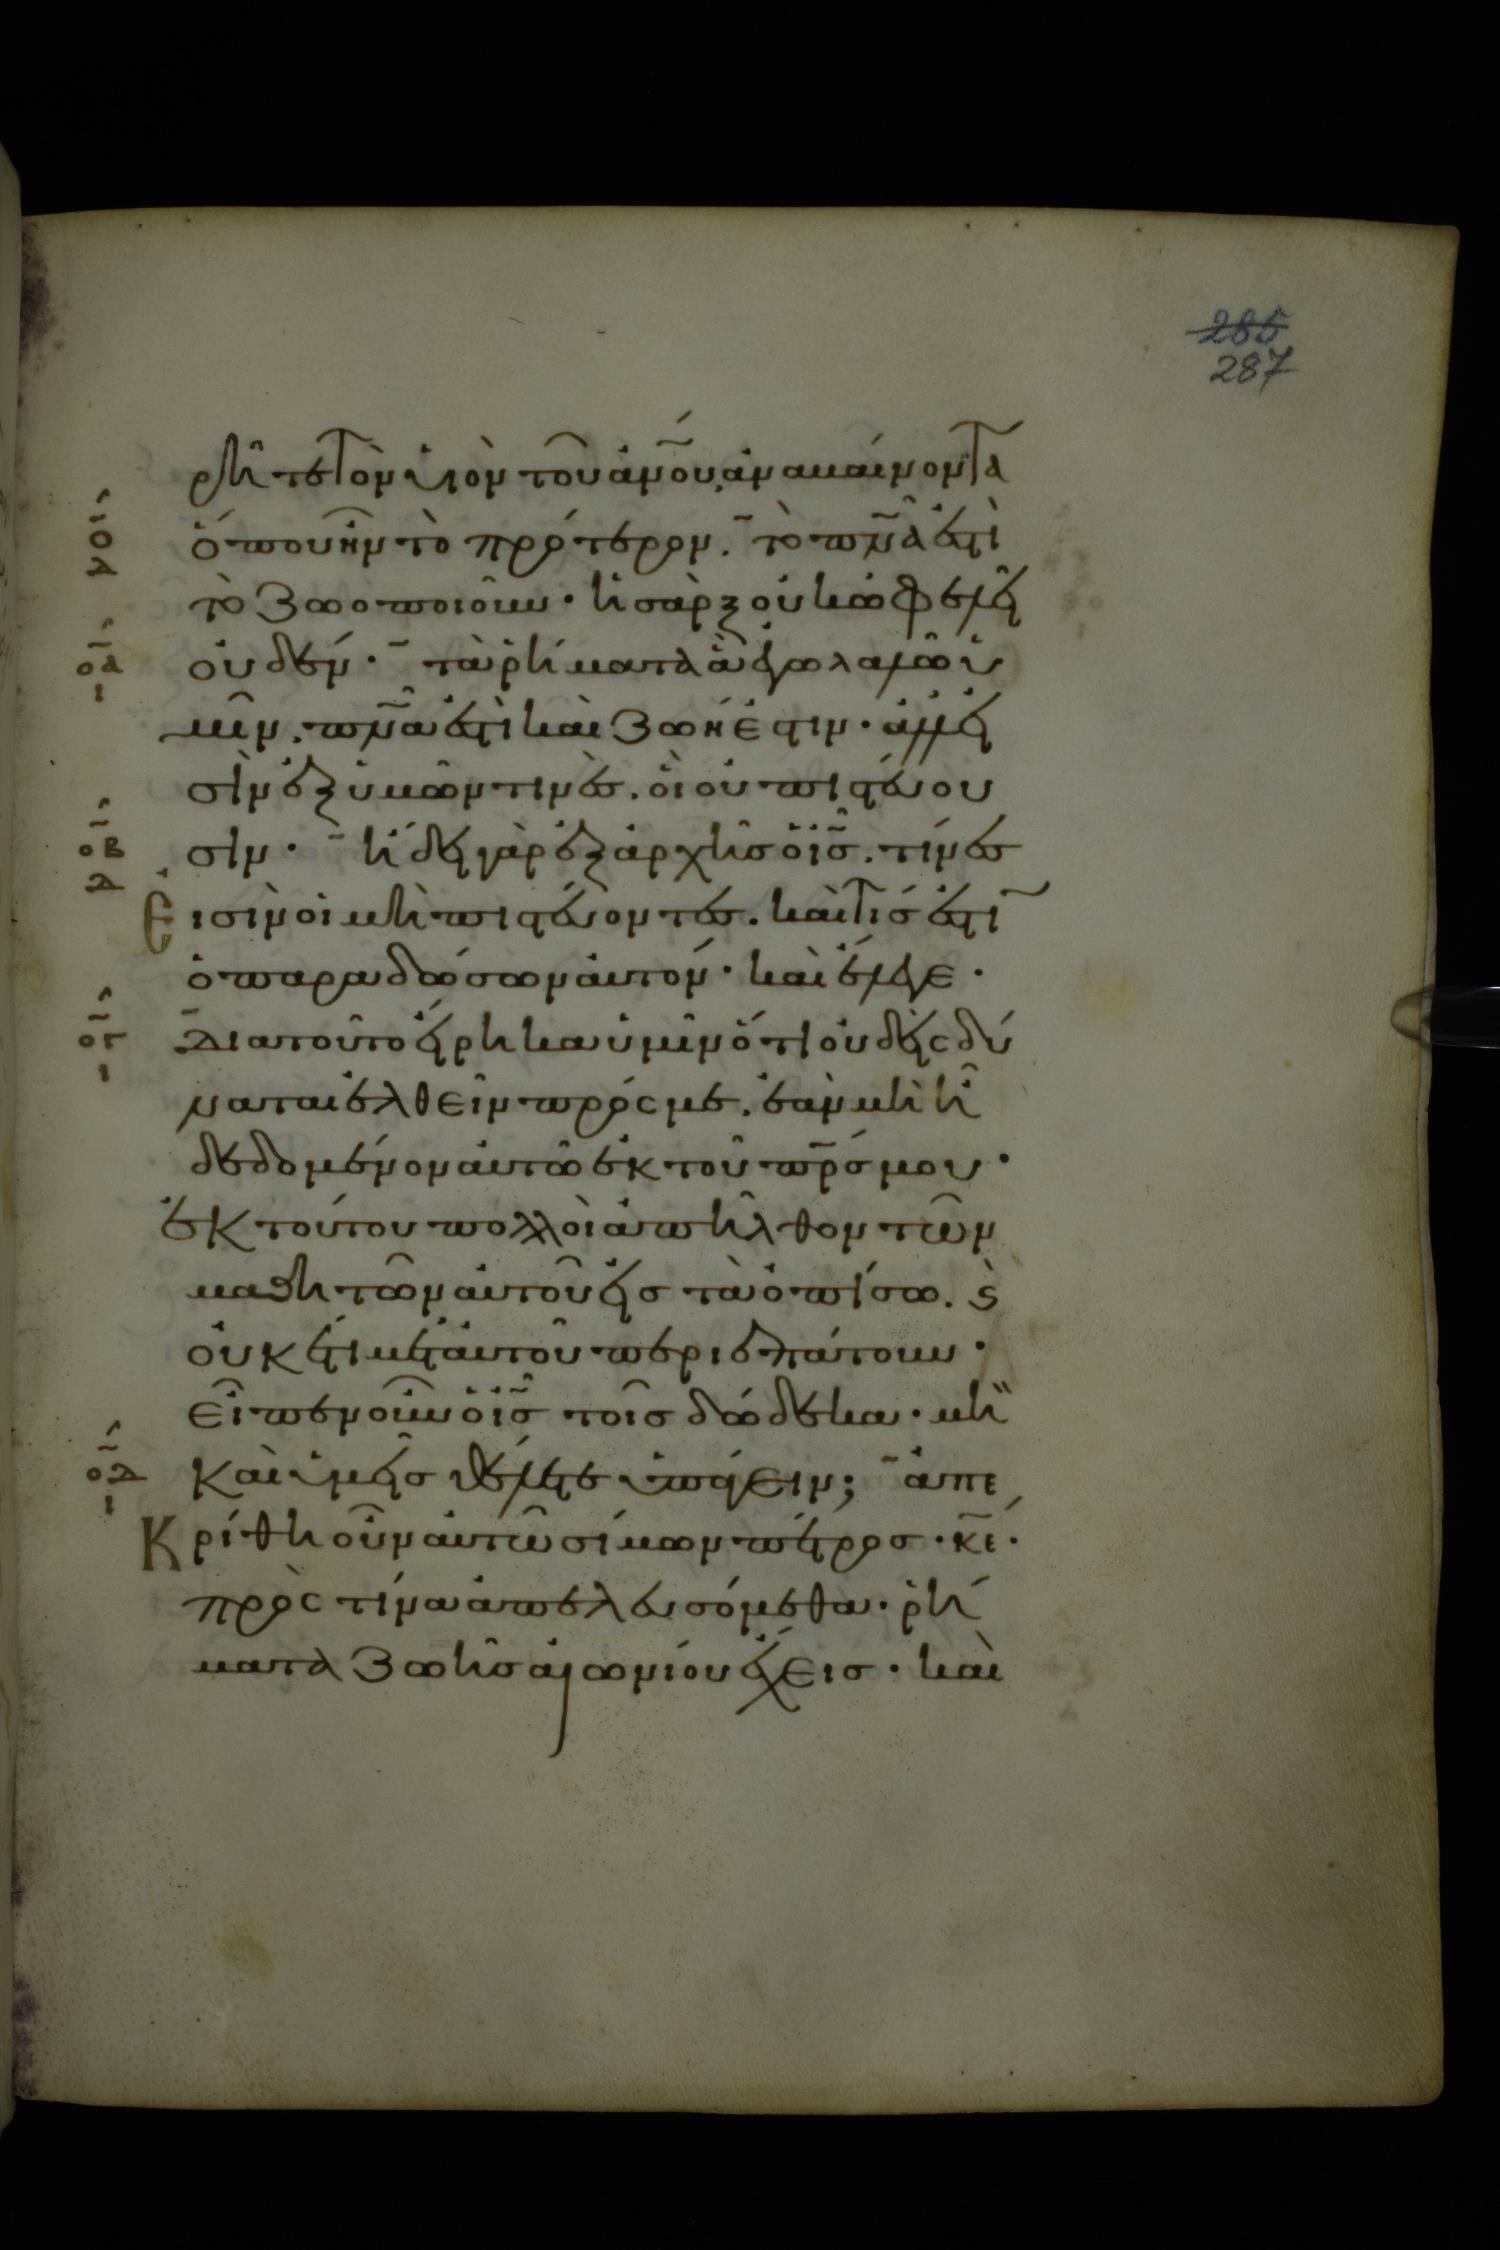 285
287
ρῆτε τὸν υἱὸν τοῦ ἀν̅ο̅υ̅, ἀναβαίνοντα
ὅπου ἦν τὸ πρότερον. τὸ π̅ν̅α̅ ἐστὶ
τὸ ζωοποιοῦν· ἡ σὰρξ οὐκ ὠφελεῖ
οὐδέν· τὰ ῥήματα ἃ ἐγὼ λαλῶ ὑ
μῖν, π̅ν̅α̅ ἐστὶ καὶ ζωή ἐστιν· ἀλλ' εἰ
σὶν ἐξ ὑμῶν τινὲς. οἳ οὐ πιστεύου
σιν· ἤδει γὰρ ἐξ ἀρχῆς ὁ ι̅σ̅. τίνες
εἰσὶν οἱ μὴ πιστεύοντες. καὶ τίς ἐστι
ὁ παραδώσων αὐτόν· καὶ ἔλεγε·
Διατοῦτο εἴρηκα ὑμῖν ὅτι οὐδεὶς δύ
ναται ἐλθεῖν πρός με. ἐὰν μὴ ἦ
δεδομένον αὐτῶ ἐκ τοῦ π̅ρ̅σ̅ μου·
ἐκ τούτου πολλοὶ ἀπῆλθον τῶν
μαθητῶν αὐτοῦ εἰς τὰ ὀπίσω. ϛ
οὐκέτι μετ' αὐτοῦ περιεπάτουν·
εἶπεν οὖν ὁ ι̅σ̅ τοῖς δώδεκα· μὴ
Καὶ ὑμεῖς θέλετε ὑπάγειν; ἀπε
Κρίθη οὖν αὐτῶ σίμων πέτρος· κ̅ε̅·
πρὸς τίνα ἀπελευσόμεθα· ῥή
ματα ζωῆς αἰωνίου ἔχεις· καὶ
ο̅α̅
ι
ο̅β̅
δ
ο̅γ̅
ι
ο̅δ̅
ι